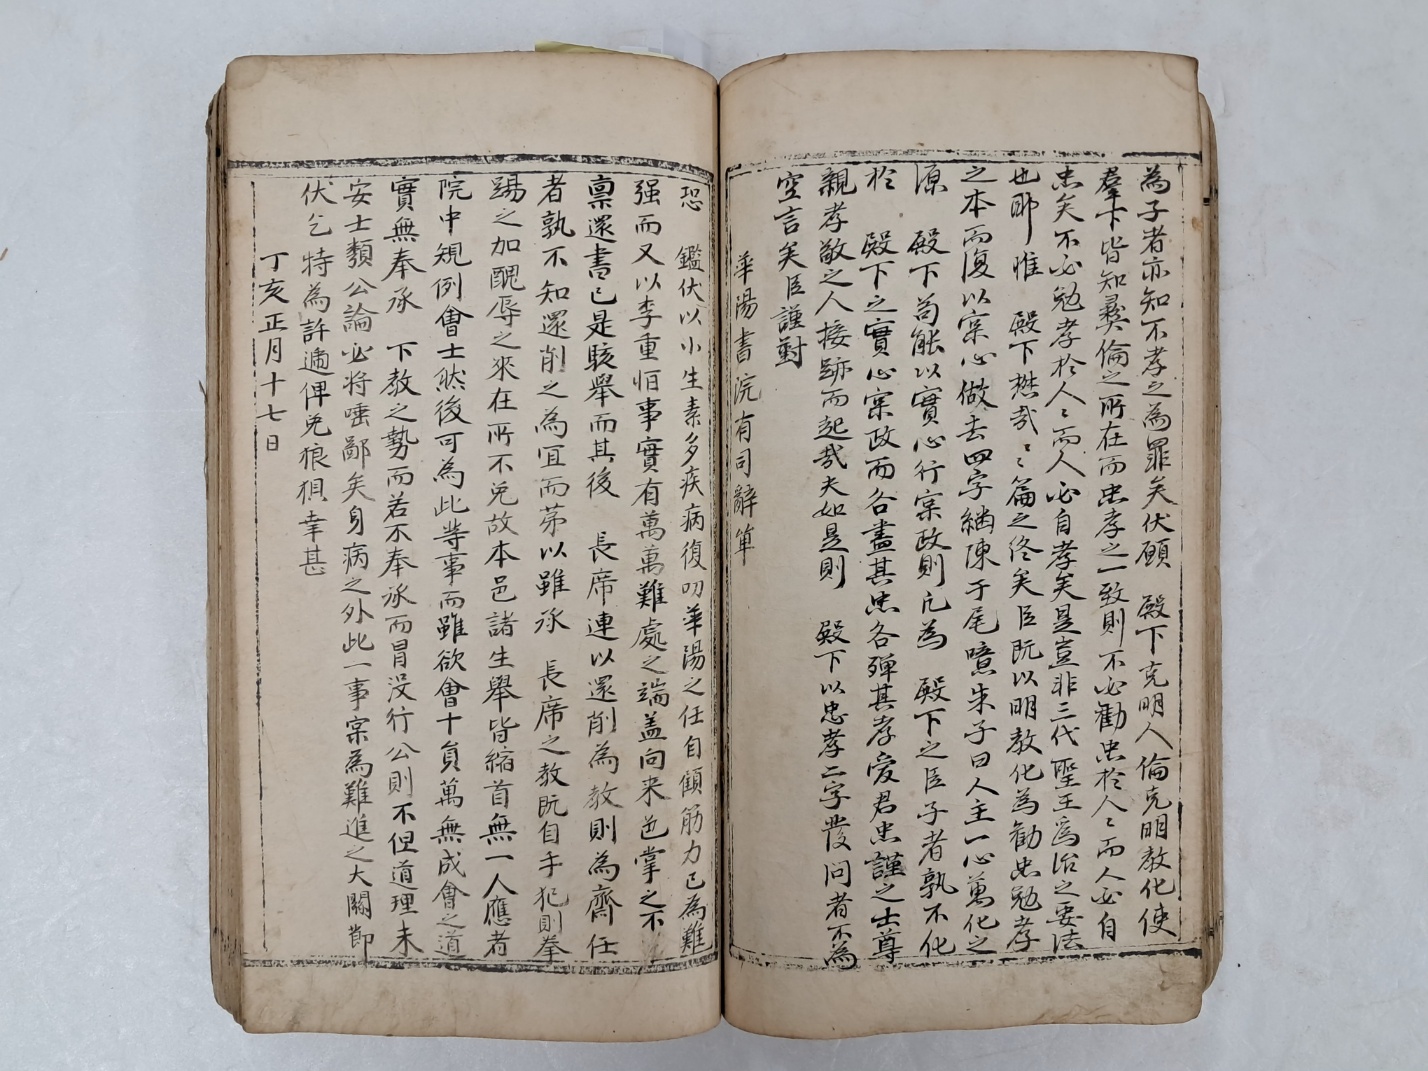 為子者亦知不孝之為罪矣伏願　殿下克明人倫克明教化使
羣下皆知彛倫之所在而忠孝之一致則不必勸忠於人〻而人必自
忠矣不必勉孝於人〻而人必自孝矣是豈非三代聖王為治之要法
也耶惟　殿下懋哉〻〻篇之終矣臣旣以明教化為勸忠勉孝
之本而復以宲心做去四字緬陳于尾噫朱子曰人主一心萬化之
源　殿下苟能以實心行宲政則凡為　殿下之臣子者孰不化
於　殿下之實心宲政而各盡其忠各殫其孝愛君忠謹之士尊
親孝敬之人接跡而起哉夫如是則　殿下以忠孝二字發問者不為
空言矣臣謹對
華陽書院有司辭單
恐　鑑伏以小生素多疾病復叨華陽之任自顧筋力已為難
强而又以李重怛事實有萬萬難處之端盖向来邑掌之不
禀還書已是駭舉而其後　長席連以還削為教則為齋任
者孰不知還削之為宜而苐以雖承　長席之教旣自手犯則拳
踢之加醜辱之來在所不免故本邑諸生舉皆縮首無一人應者
院中規例會士然後可為此等事而雖欲會十員萬無成會之道
實無奉承　下教之勢而若不奉承而冒没行公則不但道理未
安士類公論必将唾鄙矣身病之外此一事宲為難進之大關節
伏乞特為許遞俾免狼狽幸甚
丁亥正月十七日